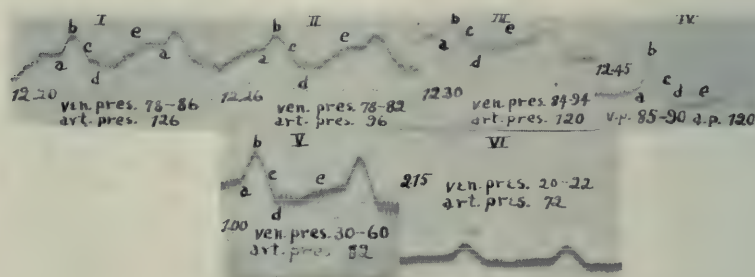 I
b
e
c
a
a
d
12.20
ven. pres. 78-86
art. pres. 126
II
b
e
a
c
d
12.26
ven. pres. 78-82
art. pres. 96
III
b
c
e
a
d
12.30
ven. pres. 84-94
art. pres. 120
IV
b
12.45
c
a
d
e
v.p. 85-90 a.p. 120
V
b
c
a
e
d
1.00
ven. pres. 30-60
art. pres.
VI
2.15
ven. pres. 20-22
art. pres. 72